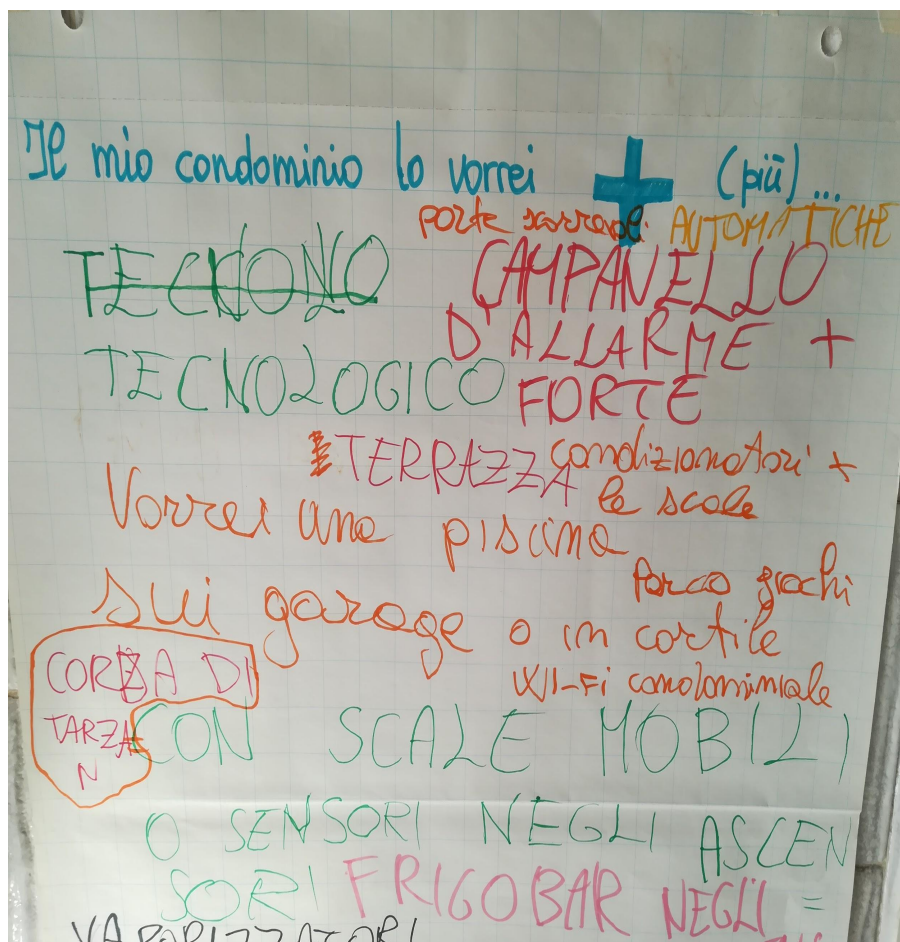 Il mio condominio lo vorrei + (più)...
porte scorrevoli AUTOMATICHE
TECNONO
CAMPANELLO
D'ALLARME +
FORTE
TECNOLOGICO
TERRAZZA
condizionatori x
le scale
Vorrei una piscina
sui garage o in cortile
Parco giochi
WI-Fi condominiale
CORDA DI
TARZA
N
CON SCALE MOBILI
O SENSORI NEGLI ASCEN
SORI FRIGOBAR NEGLI =
VAPORIZZATORI